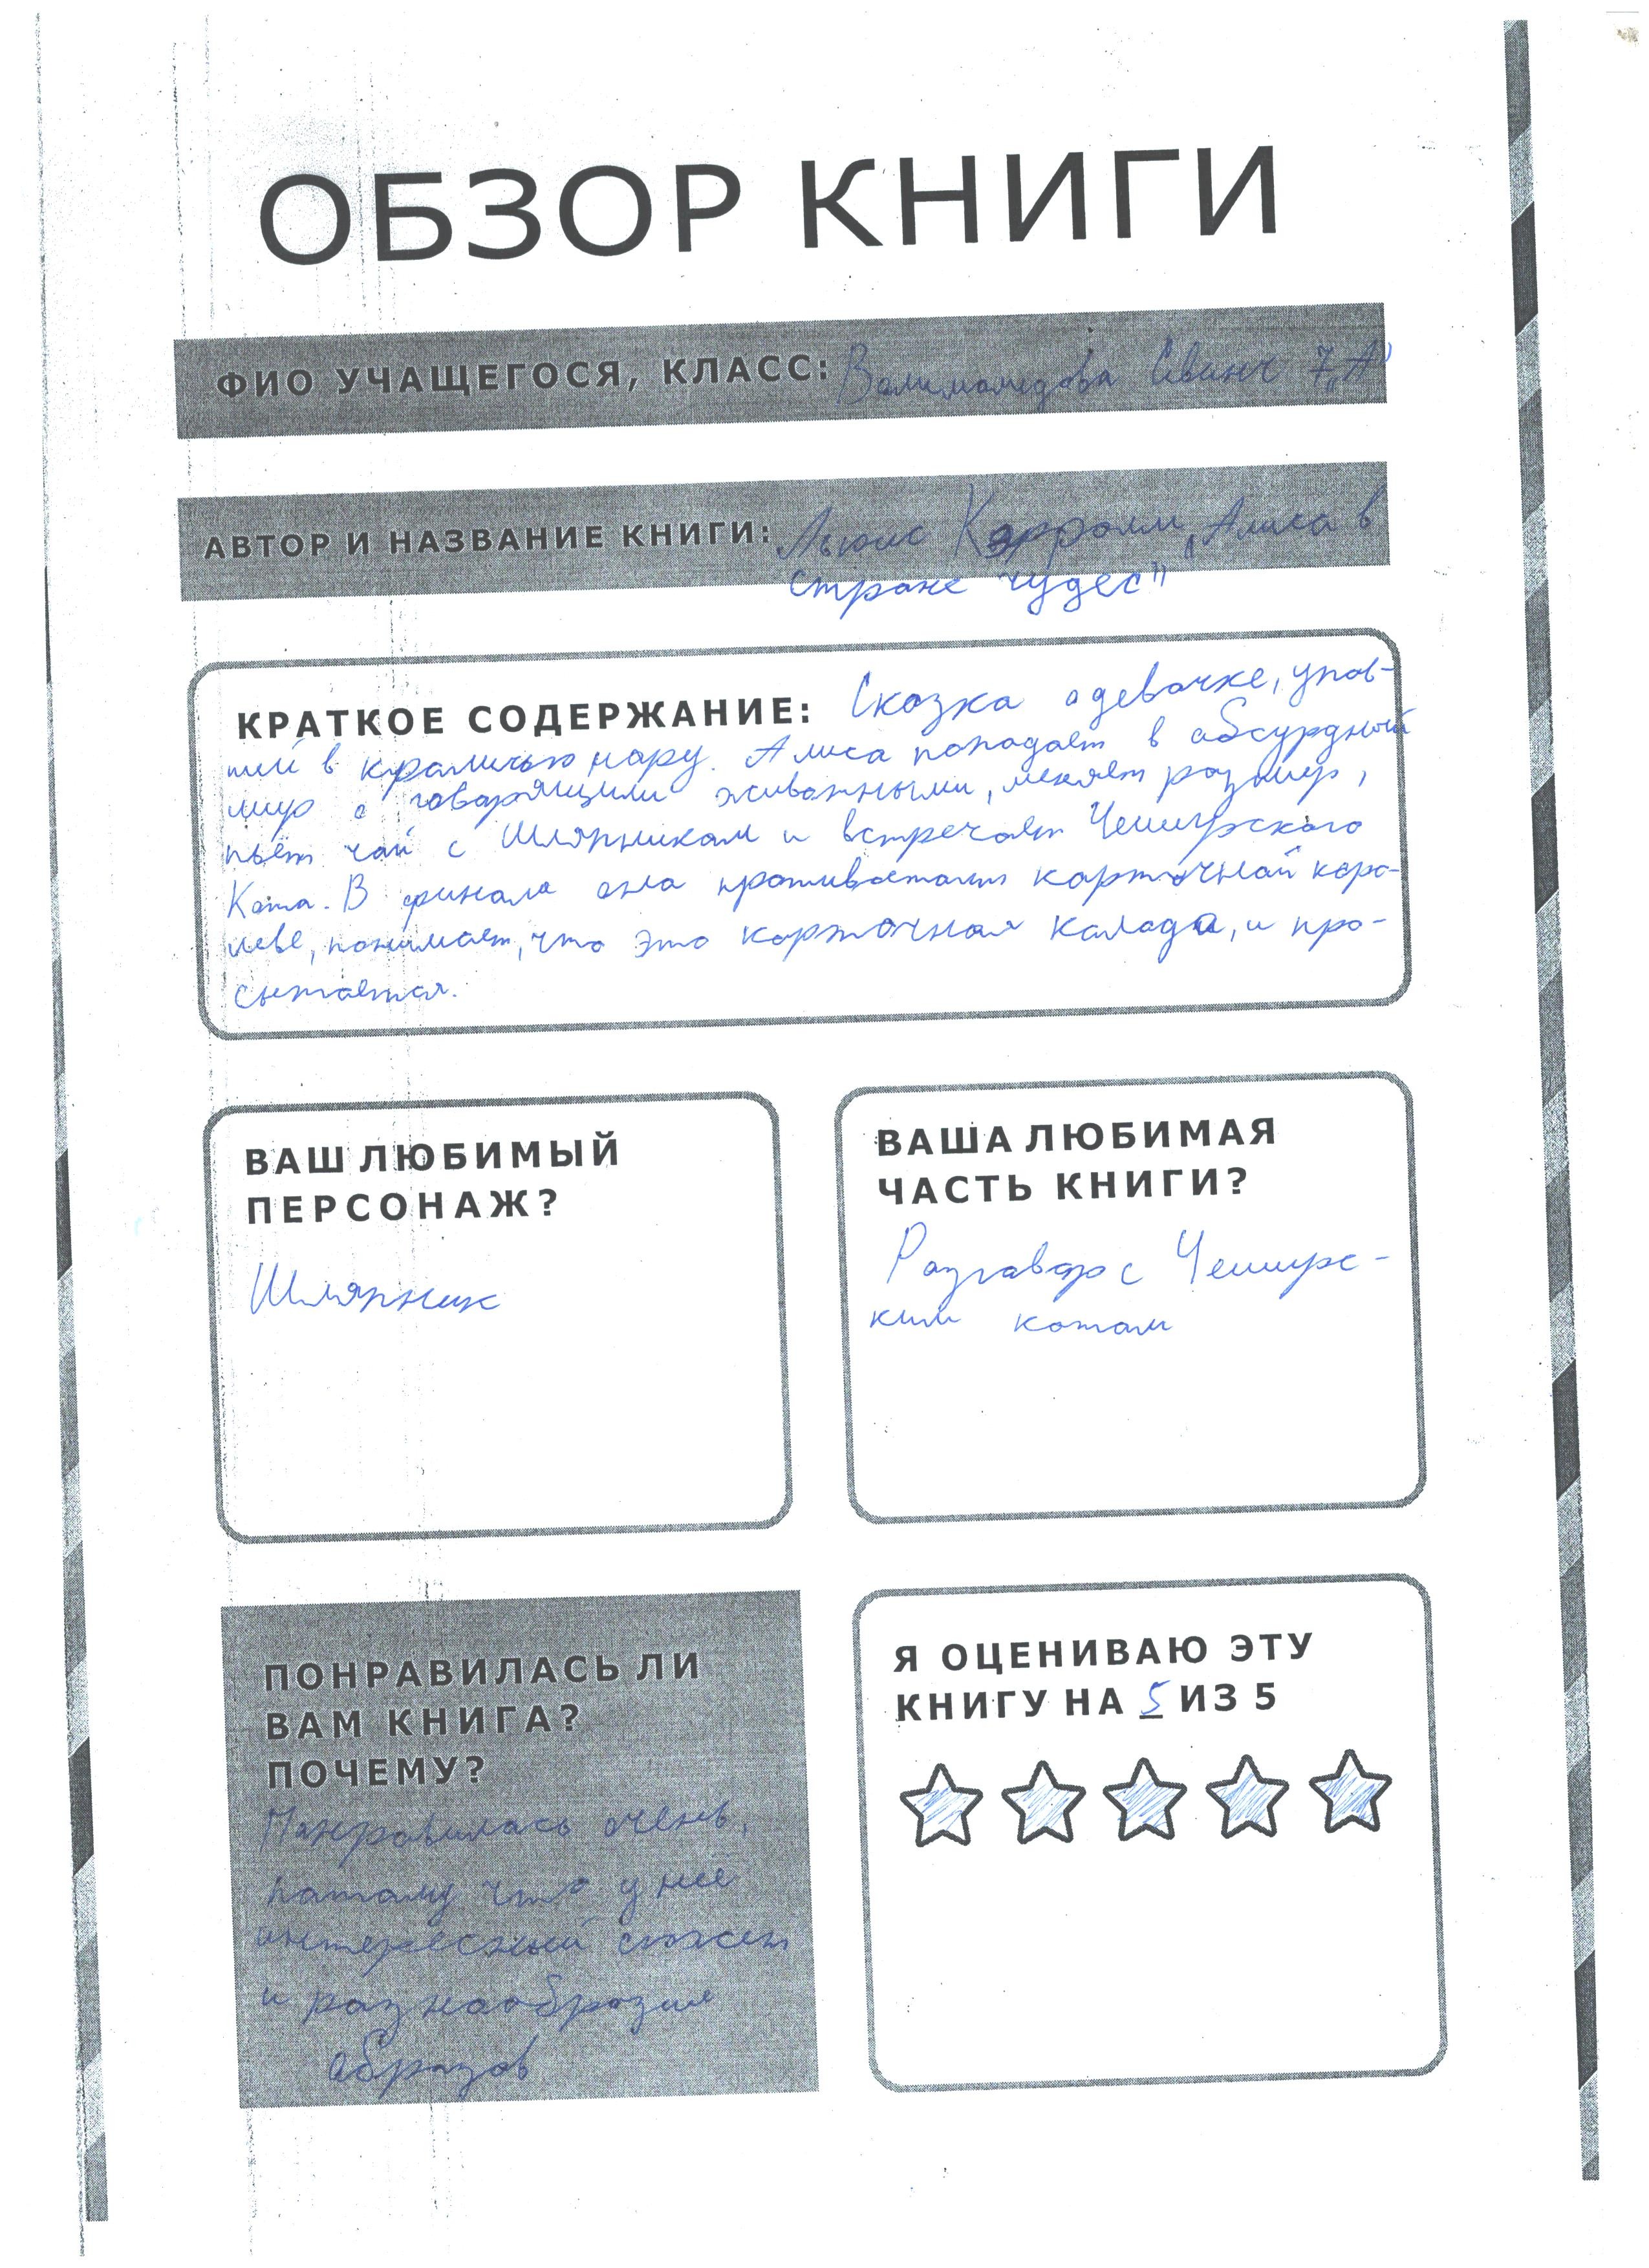 ОБЗОР КНИГИ
ФИО УЧАЩЕГОСЯ, КЛАСС: Валимамедова Севинч 7„А"
АВТОР И НАЗВАНИЕ КНИГИ: Льюис Кэрролл „Алиса в
стране чудес"
КРАТКОЕ СОДЕРЖАНИЕ: Сказка о девочке, упав-
шей в кроличью нору. Алиса попадает в абсурдный
мир с говорящими животными, меняет размер,
пьёт чай с Шляпником и встречает Чеширского
Кота. В финале она противостоит карточной коро-
леве, понимает, что это карточная колода, и про-
сыпается.
ВАШ ЛЮБИМЫЙ
ПЕРСОНАЖ?
Шляпник
ВАША ЛЮБИМАЯ
ЧАСТЬ КНИГИ?
Разговор с Чеширс-
ким котом
ПОНРАВИЛАСЬ ЛИ
ВАМ КНИГА?
ПОЧЕМУ?
Понравилась очень,
потому что у неё
интересный сюжет
и разнообразие
образов
Я ОЦЕНИВАЮ ЭТУ
КНИГУ НА 5 ИЗ 5